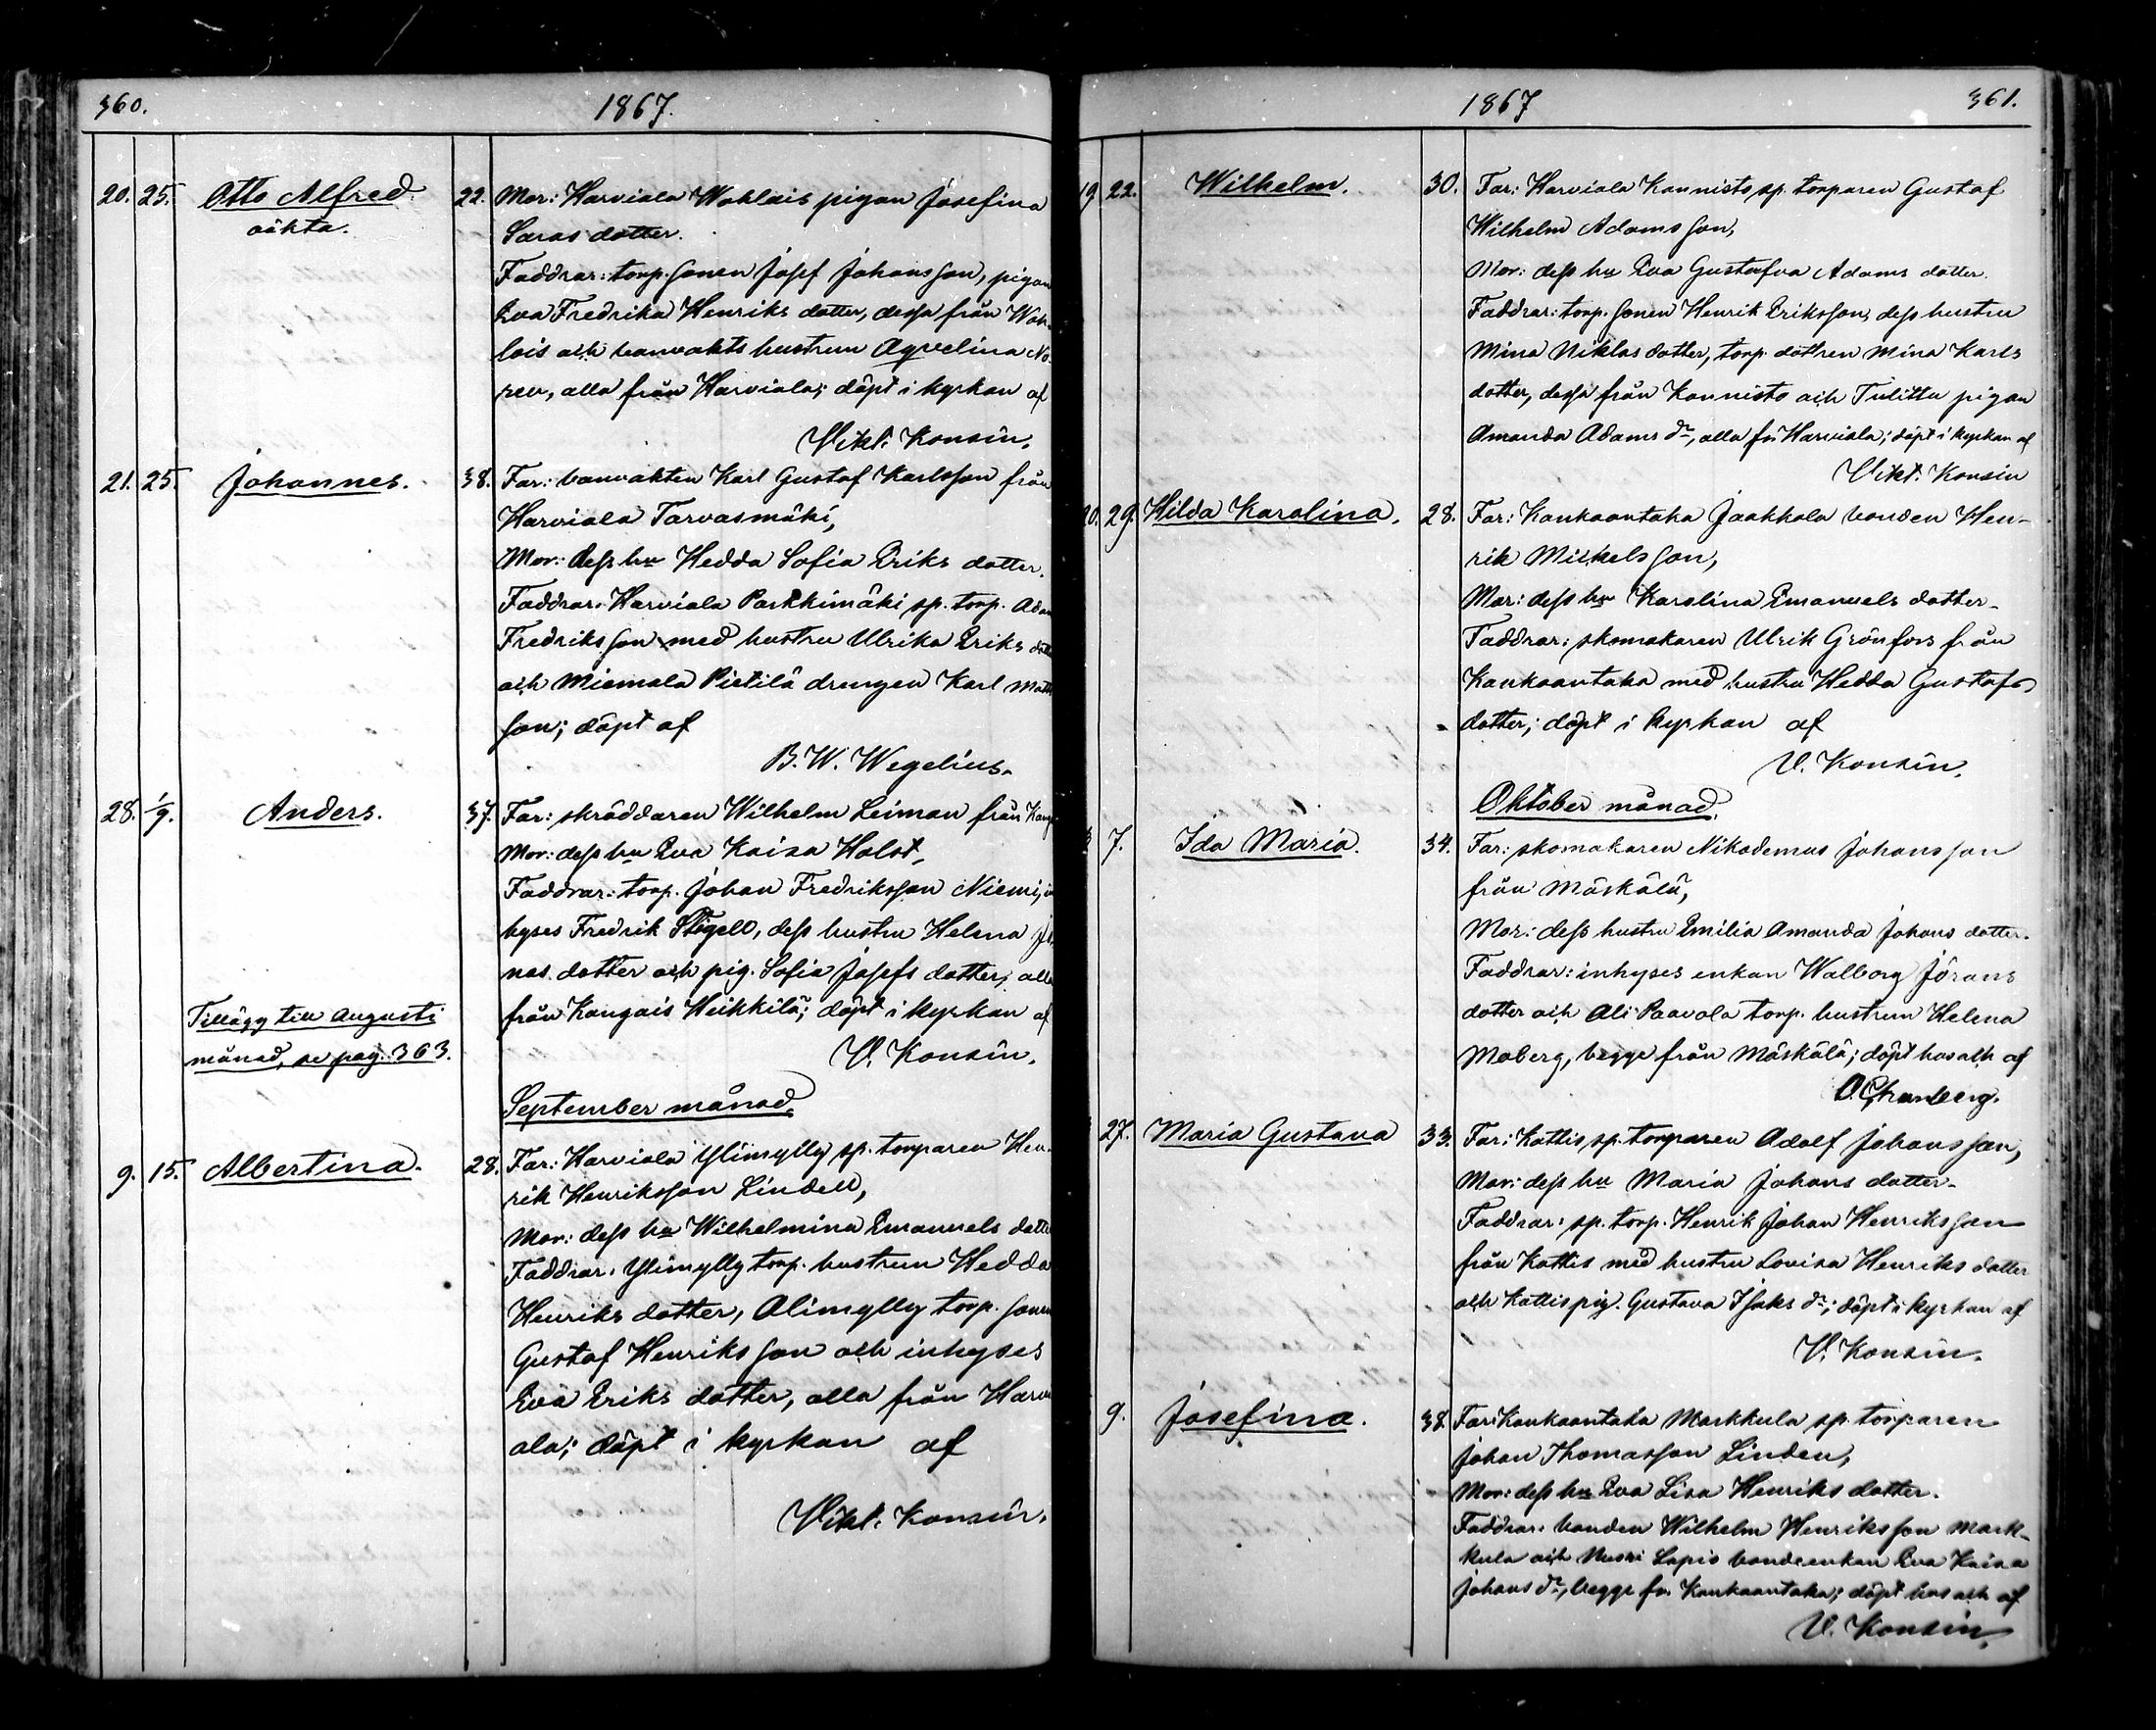 360. 1867.
20. 25. Otto Alfred. 22. Mor: Harviala Wahlais pigan Josefina
oäkta. Saras dotter.
Faddrar: torp. sonen Josef Johansson, pigan
Eva Fredrika Henriks dotter, dessa från Wah-
lais och banvakts hustrun Aqvelina No-
ren, alla från Harviala; döpt i kyrkan af
Vikt. Konsin.
21. 25. Johannes. 38. Far: banvakten Karl Gustaf Karlsson från
Harviala Tarvasmäki,
Mor: dess hu Hedda Sofia Eriks dotter.
Faddrar: Harviala Parkkimäki sp. torp. Adam
Fredriksson med hustru Ulrika Eriks dotter
och Miemala Pietilä drengen Karl Matts
son; döpt af
B. W. Wegelius.
28. 1/9. Anders. 37. Far: skräddaren Wilhelm Leiman från
Mor: dess hu Eva Kaisa Holst,
Faddrar: torp. Johan Fredriksson Niemi, in
hyses Fredrik Stigell, dess hustru Helena
nas dotter och pig. Sofia Josefs dotter, alla
Tillägg till Augusti från Kangais Heikkilä; döpt i kyrkan af
månad, se pag. 363. V. Konsin.
September månad.
9. 15. Albertina. 28. Far: Harviala Ylimylly sp. torparen Hen-
rik Henriksson Lindell,
Mor: dess hu Wilhelmina Emanuels dotter
Faddrar: Ylimylly torp. hustrun Hedda
Henriks dotter, Alimylly torp. sonen
Gustaf Henriksson och inhyses
Eva Eriks dotter, alla från Harvi
ala; döpt i kyrkan af
Vikt. Konsin.
1867 361.
19 22. Wilhelm. 30. Far: Harviala Kannisto sp. torparen Gustaf
Wilhelm Adamsson,
Mor: dess hu Eva Gustafva Adams dotter.
Faddrar: torp. sonen Henrik Eriksson, dess hustru
Mina Niklas dotter, torp. dottren Mina Karls
dotter, dessa från Kannisto och Tulittu pigan
Amanda Adams dr, alla fr. Harviala; döpt i kyrkan af
Vikt. Konsin
20. 29. Hilda Karolina. 28. Far: Kankaantaka Jaakkola bonden Hen-
rik Mickelsson,
Mor: dess hu Karolina Emanuels dotter.
Faddrar: skomakaren Ulrik Grönfors från
Kankaantaka med hustru Hedda Gustafs
dotter; döpt i kyrkan af
V. Konsin.
Oktober månad.
7. Ida Maria. 34. Far: skomakaren Nikodemus Johansson
från Mäskälä,
Mor: dess hustru Emilia Amanda Johans dotter.
Faddrar: inhyses enkan Walborg Jörans
dotter och Ali-Paavola torp. hustrun Helena
Moberg, begge från Mäskälä; döpt hos och af
27. Maria Gustava 33. Far: Kattis sp. torparen Adolf Johansson,
Mor: dess hu Maria Johans dotter.
Faddrar: sp. torp. Henrik Johan Henriksson
från Kattis med hustru Lovisa Henriks dotter
och Kattis pig. Gustava Isaks dr; döpt i kyrkan af
V. Konsin.
9. Josefina. 38. Far: Kankaantaka Markkula sp. torparen
Johan Thomasson Linden,
Mor: dess hu Eva Lisa Henriks dotter.
Faddrar: bonden Wilhelm Henriksson Mark-
kula och Lapio bondeenkan Eva Kaisa
Johans dr, begge fr. Kankaantaka; döpt hos och af
V. Konsin.